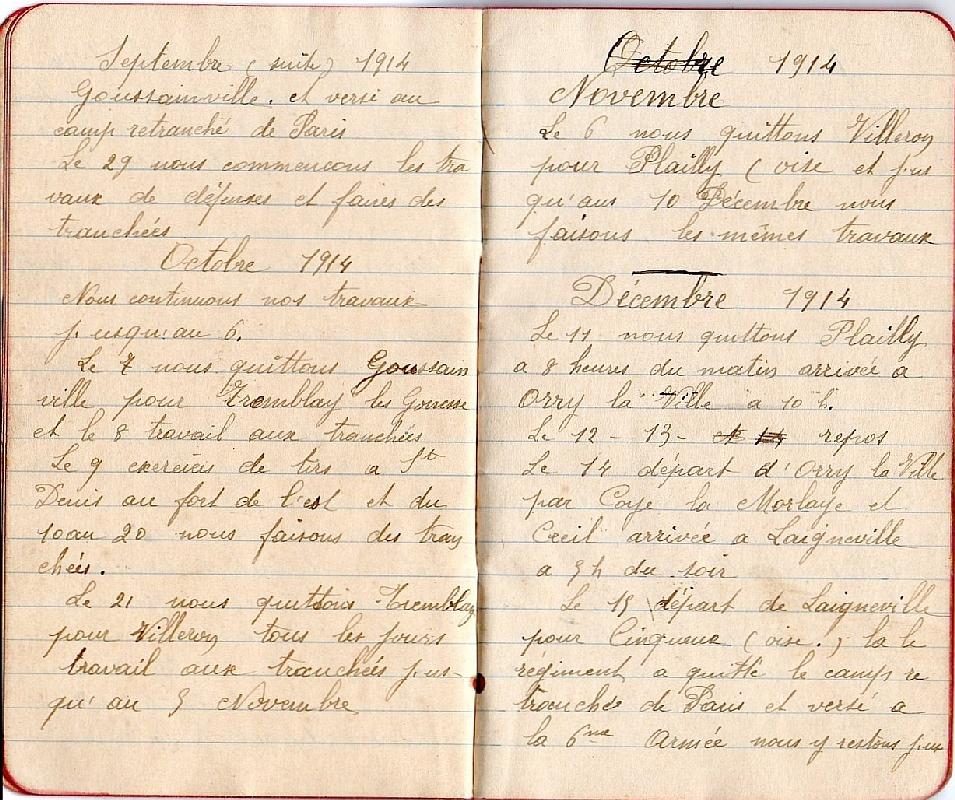 Septembre (suite) 1914
Goussainville. et versé au
camp retranché de Paris
Le 29 nous commencons les tra
vaux de défenses et faires des
tranchées
Octobre 1914
Nous continuons nos travaux
jusqu'au 6.
Le 7 nous quittons Goussain
ville pour Tremblay les Gonesse
et le 8 travail aux tranchées
Le 9 exercices de tirs a St
Denis au fort de l'est et du
10 au 20 nous faisons des tran
chées.
Le 21 nous quittons Tremblay
pour Villeron tous les jours
travail aux tranchées jus-
qu'au 5 Novembre
Octobre 1914
Novembre
Le 6 nous quittons Villeron
pour Plailly (oise et jus
qu'aus 10 Décembre nous
faisons les mêmes travaux
Décembre 1914
Le 11 nous quittons Plailly
a 8 heures du matin arrivée a
Orry la Ville a 10 h.
Le 12 - 13 - et 14 repos
Le 14 départ d'Orry la Ville
par Coye la Morlaye et
Creil arrivée a Laigneville
a 5h du soir
Le 15 départ de Laigneville
pour Cinqueux (oise.) la le
régiment a quitté le camp re
tranchée de Paris et versé a
la 6me Armée nous y restons jus